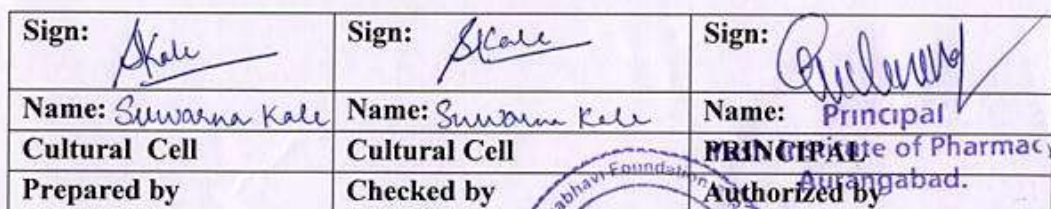 Sign: SKale Sign: SKale Sign:
Name: Suwarna Kale Name: Suwarna Kale Name: Principal
Cultural Cell Cultural Cell PRINCIPAL Institute of Pharmacy
Aurangabad.
Prepared by Checked by Authorized by
Foundation